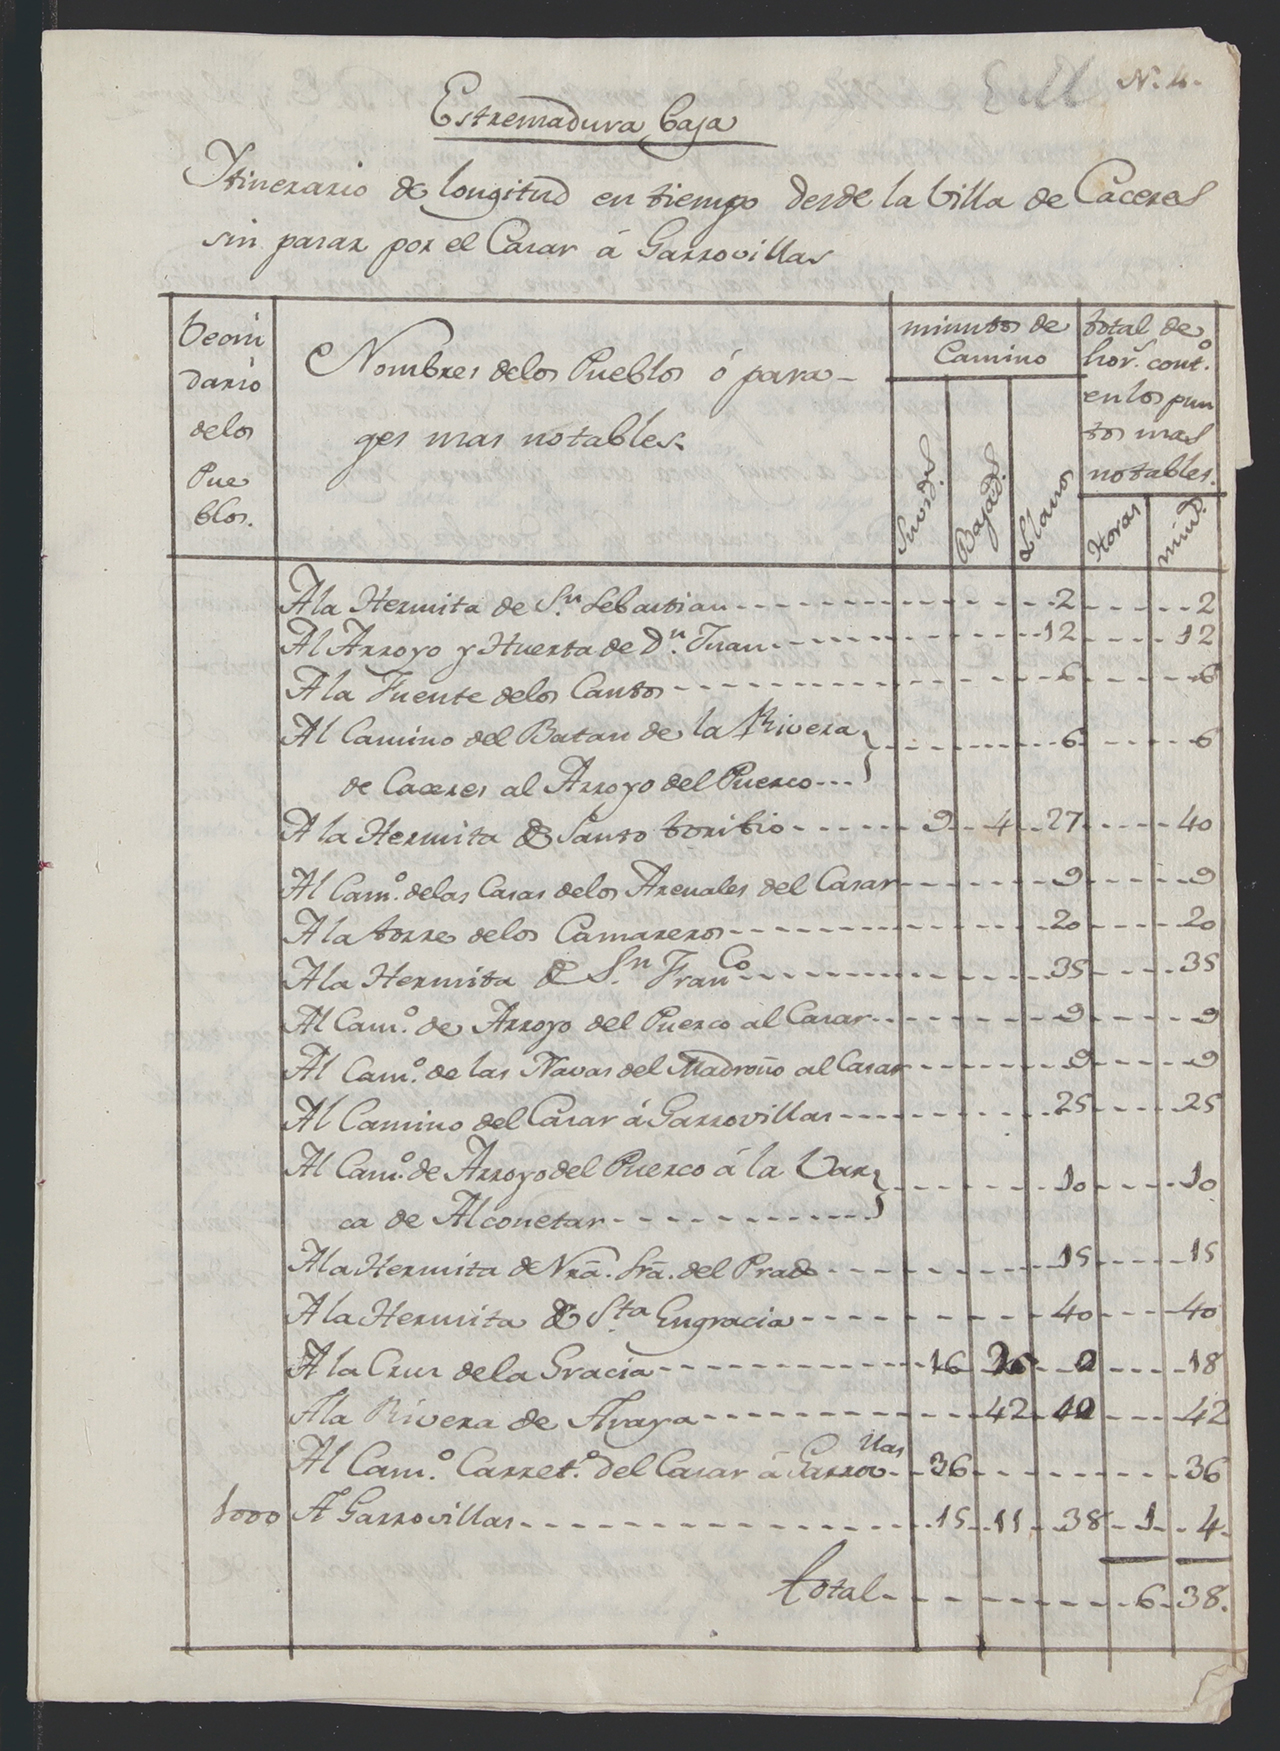 N.º 4.
Estremadura baja
Itinerario de longitud en tiempo desde la billa de Caceres
sin pasar por el Casar á Garrovillas
becin
dario
delos
Pue
blos.
Nombres delos Pueblos ó para-
ges mas notables.
minutos de
Camino
Suvid.s
Bajad.s
Llanos
total de
hor.s cont.º
en los pun
tos mas
notables.
Horas
minut.s
A la Hermita de S.n Sebastian 2 2
Al Arroyo y Huerta de D.n Juan 12 12
A la Fuente delos Cantos 6 6
Al Camino del Batan de la Rivera
de Caceres al Arroyo del Puerco 6 6
A la Hermita de Santo toribio 9 4 27 40
Al Cam.º delas Casas delos Arenales del Casar 9 9
A la torre delos Camareros 20 20
A la Hermita de S.n Fran.co 35 35
Al Cam.º de Arroyo del Puerco al Casar 9 9
Al Cam.º de las Navas del Madroño al Casar 9 9
Al Camino del Casar á Garrovillas 25 25
Al Cam.º de Arroyo del Puerco á la Var
ca de Alconetar 10 10
A la Hermita de Nrã. Srã. del Prado 15 15
A la Hermita de S.ta Engracia 40 40
A la Cruz de la Gracia 16 2 18
A la Rivera de Araya 42 42
Al Cam.º Carret.º del Casar á Garrovillas 36 36
1000 A Garrovillas 15 11 38 1 4
total 6 38.